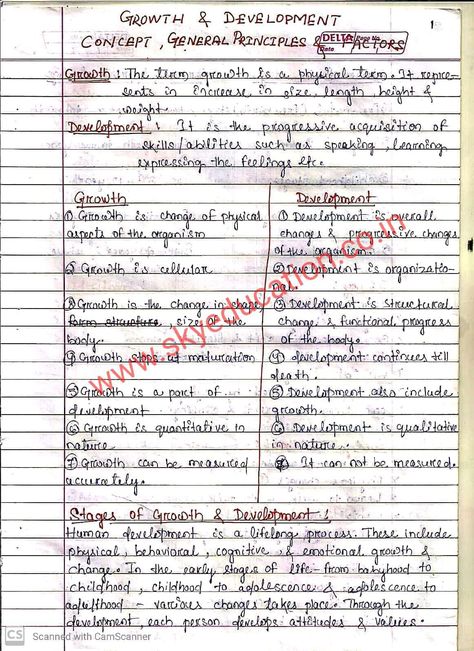 GROWTH & DEVELOPMENT
1
CONCEPT, GENERAL PRINCIPLES & FACTORS
DELTA Page No.
Date
Growth : The term growth is a physical term. It repre-
sents in increase in size, length, height &
weight.
Development : It is the progressive acquisition of
skills/abilities such as speaking, learning
expressing the feelings etc.
Growth
① Growth is change of physical
aspects of the organism
② Growth is cellular
③ Growth is the change in shape
form structure, size of the
body.
④ Growth stops at maturation
⑤ Growth is a part of
development
⑥ Growth is quantitative in
nature
⑦ Growth can be measured
accurately.
Development
① Development is overall
changes & progressive changes
of the organism.
② Development is organizatio-
nal.
③ Development is structural
change & functional progress
of the body.
④ development continues till
death.
⑤ Development also include
growth.
⑥ Development is qualitative
in nature.
⑦ It can not be measured.
www.skyeducation.co.in
Stages of Growth & Development :
Human development is a lifelong process. These include
physical, behavioral, cognitive & emotional growth &
change. In the early stages of life - from babyhood to
childhood, childhood to adolescence & adolescence to
adulthood - various changes takes place. Through the
development, each person develops attitudes & values.
CS Scanned with CamScanner